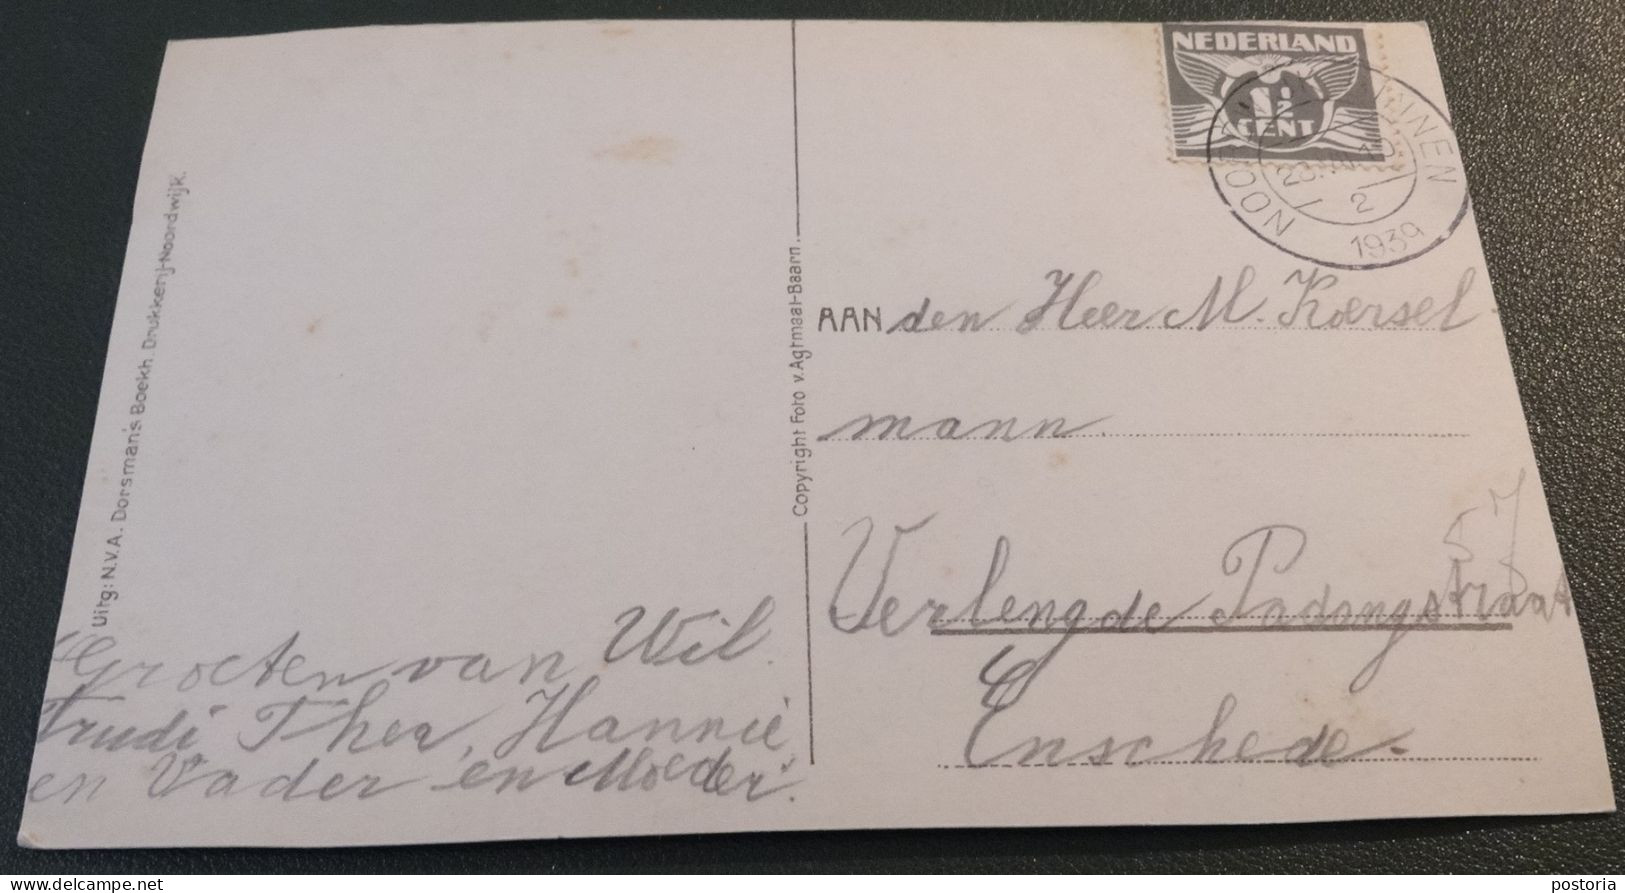 Uitg: N.V.A. Dorsman's Boekh. Drukkerij-Noordwijk.
Groeten van Wil.
Trudi Thea, Hannie
en Vader en Moeder.
Copyright Foto v. Agtmaal-Baarn.
NEDERLAND
1½
CENT
INNEN
2
1939
AAN den Heer M. Koersel
mann
57
Verlengde Padangstraat
Enschede.
postoria